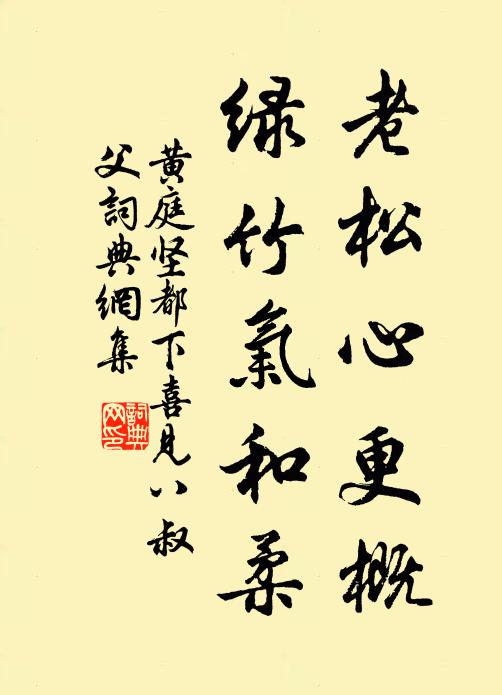 老松心更概
绿竹氣和柔
黄庭坚都下喜見八叔
父詞典網集
詞典
网印